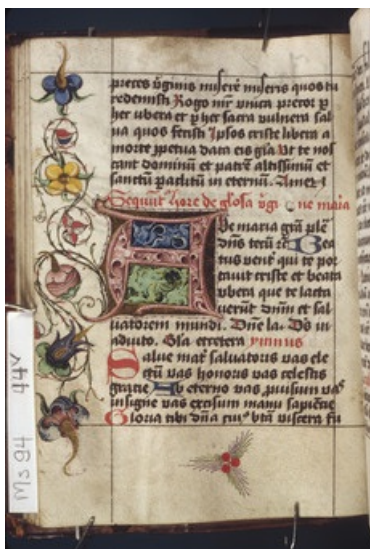 preces v̄ginis miserē miseris quos tu
redemisti Rogo nīr vnica precor p̄
her vbera et p̄ her sacra vulnera sal
ua quos fecisti Ipsos criste libera a
morte ꝑpetua data eis gr̄a Vt te nos
cant dominū et patrē altissimū et
sanctū paclitū in eternū. Amen
Sequūt̄ hore de gl̄osa v̄gīne maria
Aue maria gr̄a plē
dn̄s tecū Bea
tus vent̄ qui te por
tauit criste et beata
vbera que te lacta
uerūt dn̄m et sal
uatorem mundi. Dn̄e la. Ds̄ in
adiuto. Gl̄a etcetera ymnus
Salue mat̄ saluatoris vas ele
ctū vas honoris vas celestis
gracie Ab eterno vas ꝓuisum vas
insigne vas excisum manu sapiētie
Gloria tibi dn̄a cui⁹ bt̄a viscera fu
Ms 484v